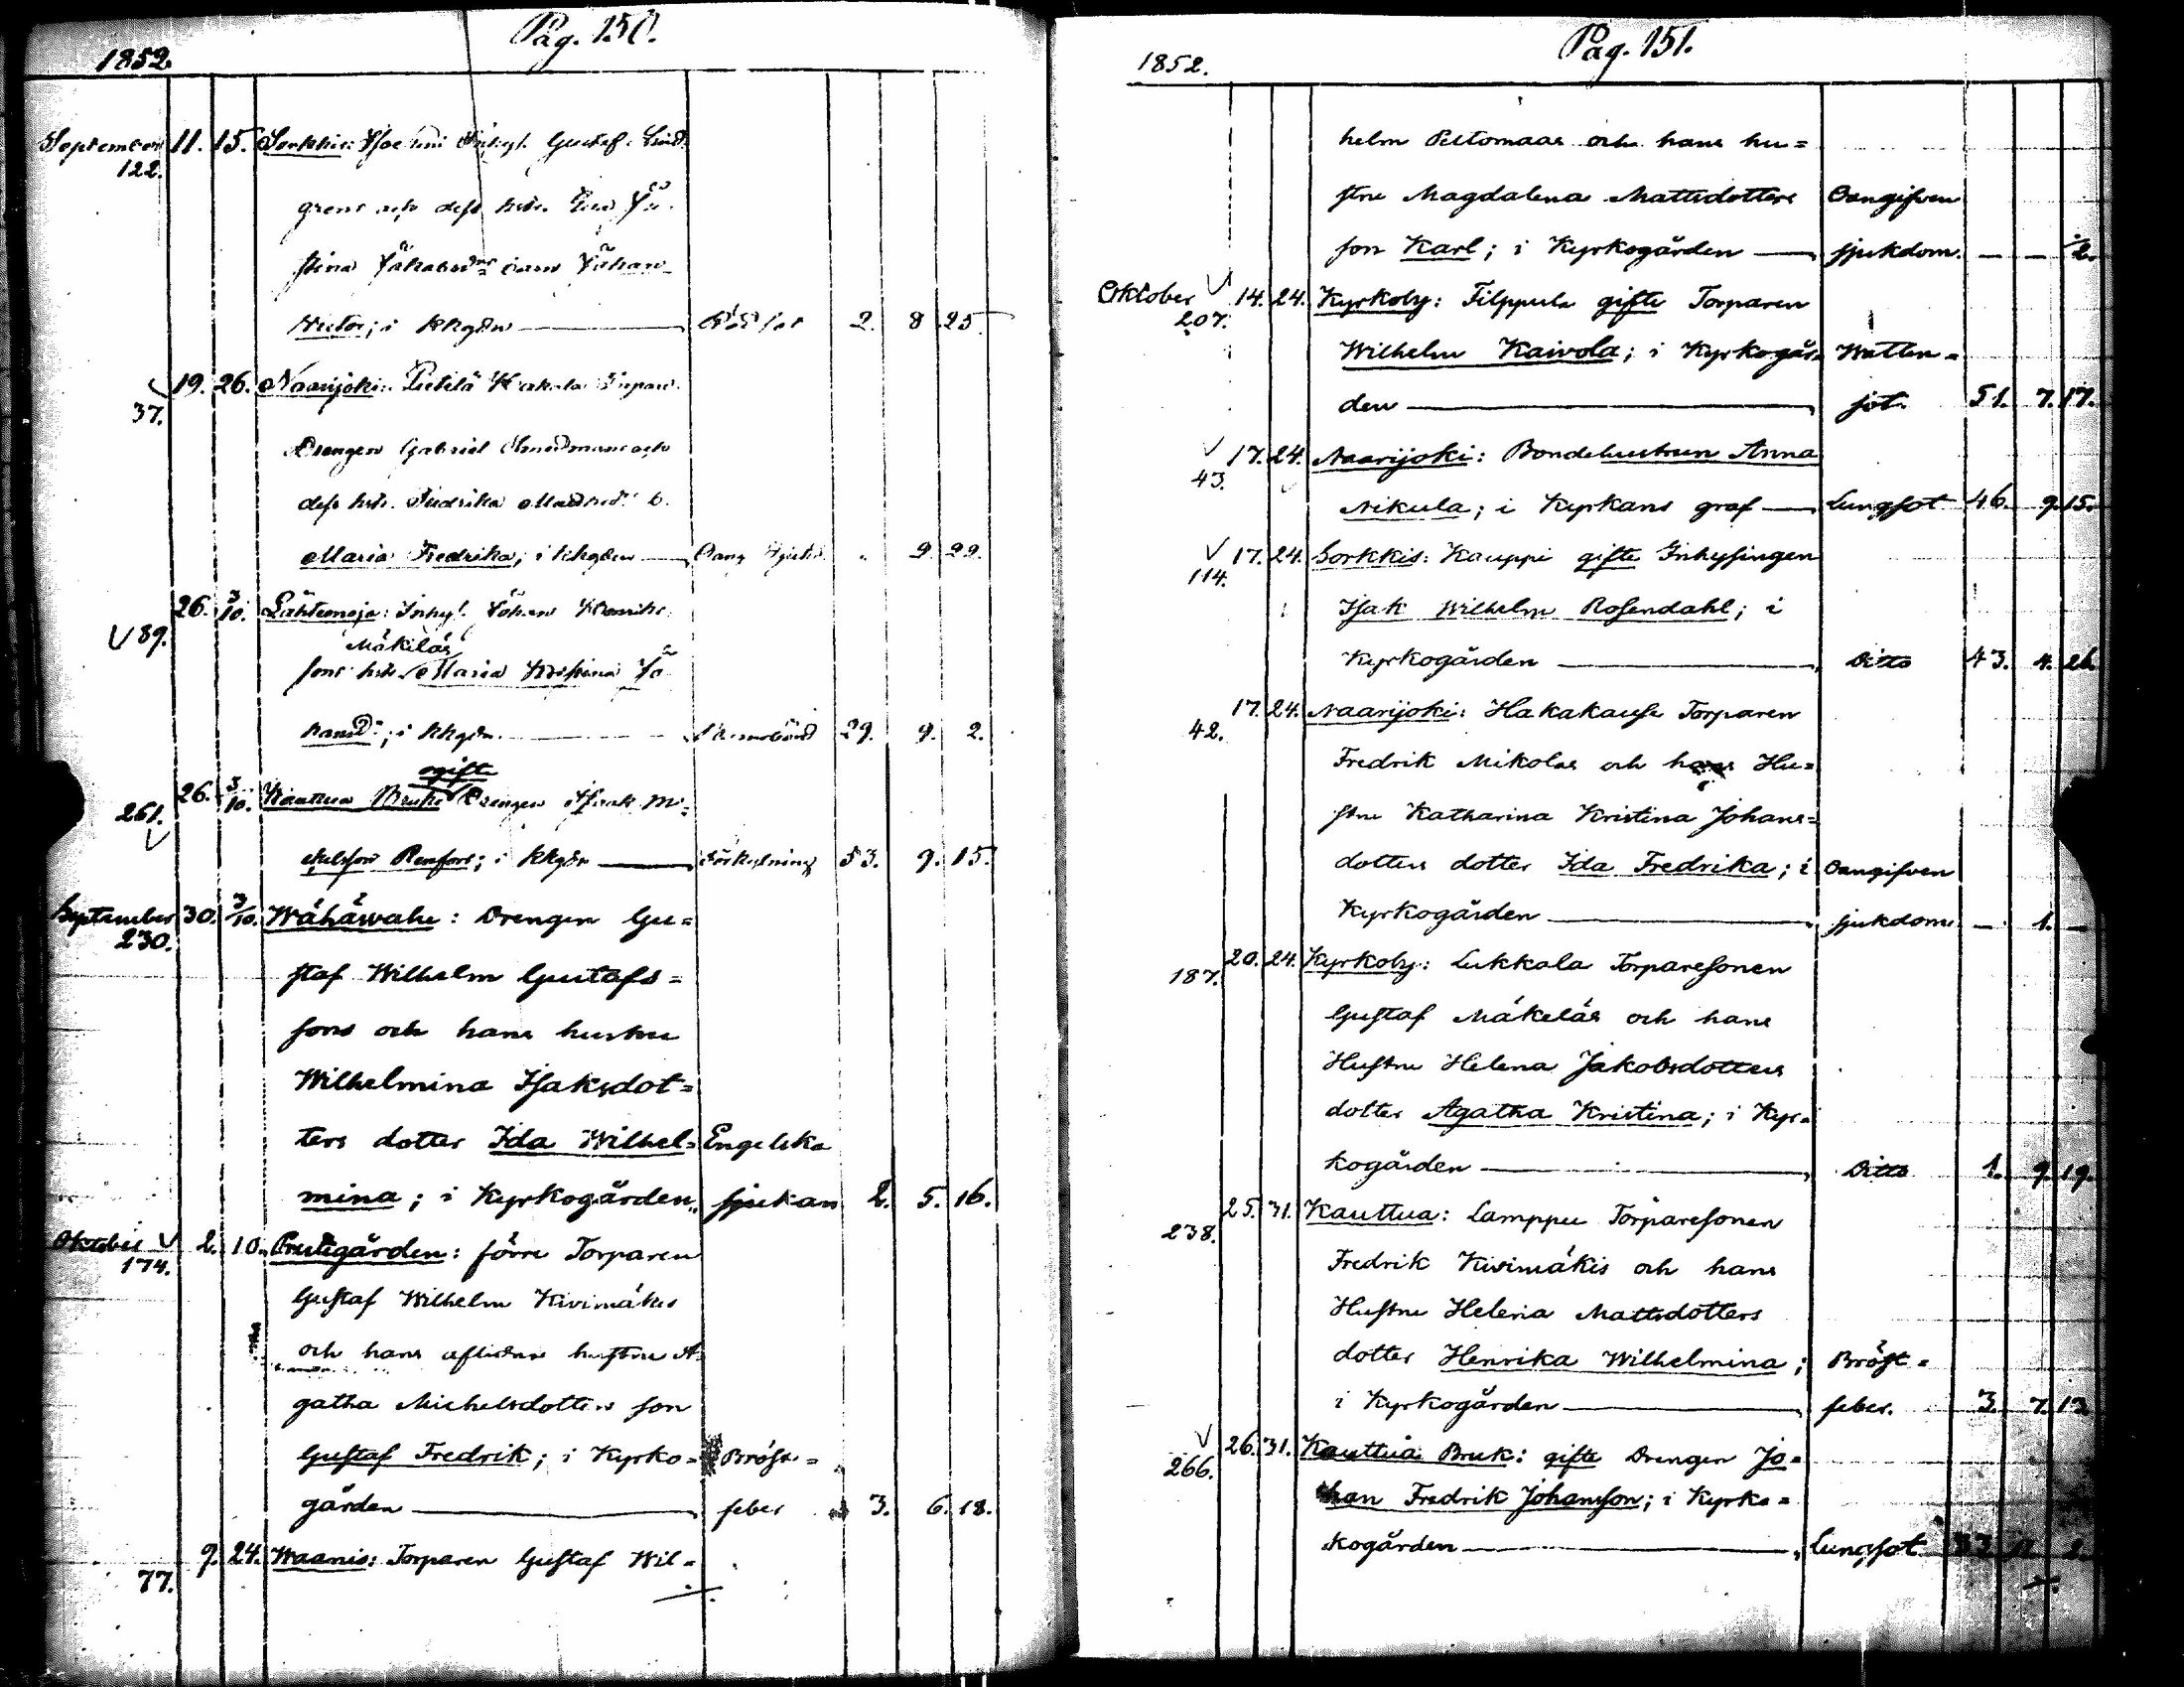 Pag. 150.
1852.
September 11. 15. Sorkkis: Gustaf Lind
122.
grens och dess
Jakobsdrs barn Johan
Victor; i kkgdn — 2. 8 25.
19. 26. Naarijoki:
37.
Drengen Gabriel och
dess hstr. Fredrika
Maria Fredrika; i kkgden — Oang 9. 29.
26. 3/10. Lähtemoja: Inhys. Johan
89.
Mäkiläs
sons hstr. Maria Kristina Jo
hansdr; i kkgdn. — 29. 9. 2.
ogifte
26. 3/10. Kauttua Bruk: Drengen Isaak Mi=
261.
ckelsson Renfors; i kkgdn — Förkylning 53. 9. 15.
September 30. 3/10. Wähäwahe: Drengen Gu=
230.
staf Wilhelm Gustafs=
sons och hans hustru
Wilhelmina Isaksdot=
ters dotter Ida Wilhel= Engelska
mina; i Kyrkogården, sjukan 2. 5. 16.
Oktober 2. 10. Prestgården: förre Torparen
174.
Gustaf Wilhelm Kivimäkis
och hans aflidna hustru A=
gatha Michelsdotters son
Gustaf Fredrik; i Kyrko= Bröst=
gården — feber 3. 6. 18.
9. 24. Waanis: Torparen Gustaf Wil=
77.
Pag. 151.
1852.
helm Peltomaas och hans hu=
stru Magdalena Mattsdotters Oangifven
son Karl; i Kyrkogården — sjukdom. — — 2.
Oktober 14. 24. Kyrkoby: Filppula gifte Torparen
207.
Wilhelm Kaivola; i Kyrkogår= Watten=
den — sot. 51. 7. 17.
17. 24. Naarijoki: Bondehustrun Anna
43.
Nikula; i Kyrkans graf — Lungsot 46. 9. 15.
17. 24. Sorkkis: Kauppi gifte Inhysingen
114.
Isak Wilhelm Rosendahl; i
Kyrkogården — Ditto 43. 4. 26.
17. 24. Naarijoki: Hakakause Torparen
42.
Fredrik Mikolas och hans Hu=
stru Katharina Kristina Johans=
dotters dotter Ida Fredrika; i Oangifven
Kyrkogården — sjukdom — 1. —
20. 24. Kyrkoby: Lukkala Torparesonen
187.
Gustaf Mäkeläs och hans
Hustru Helena Jakobsdotters
dotter Agatha Kristina; i Kyr=
kogården — Ditto 1. 9. 19.
25. 31. Kauttua: Lamppu Torparesonen
238.
Fredrik Kivimäkis och hans
Hustru Helena Mattsdotters
dotter Henrika Wilhelmina; Bröst=
i Kyrkogården — feber. 3. 7. 13
26. 31. Kauttua Bruk: gifte Drengen Jo=
266.
han Fredrik Johansson; i Kyrko=
kogården — Lungsot 2.